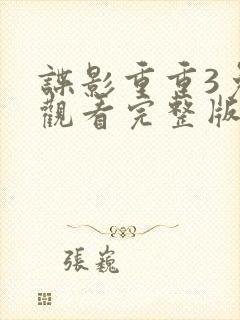 諜影重重3
觀看完整版
張巍